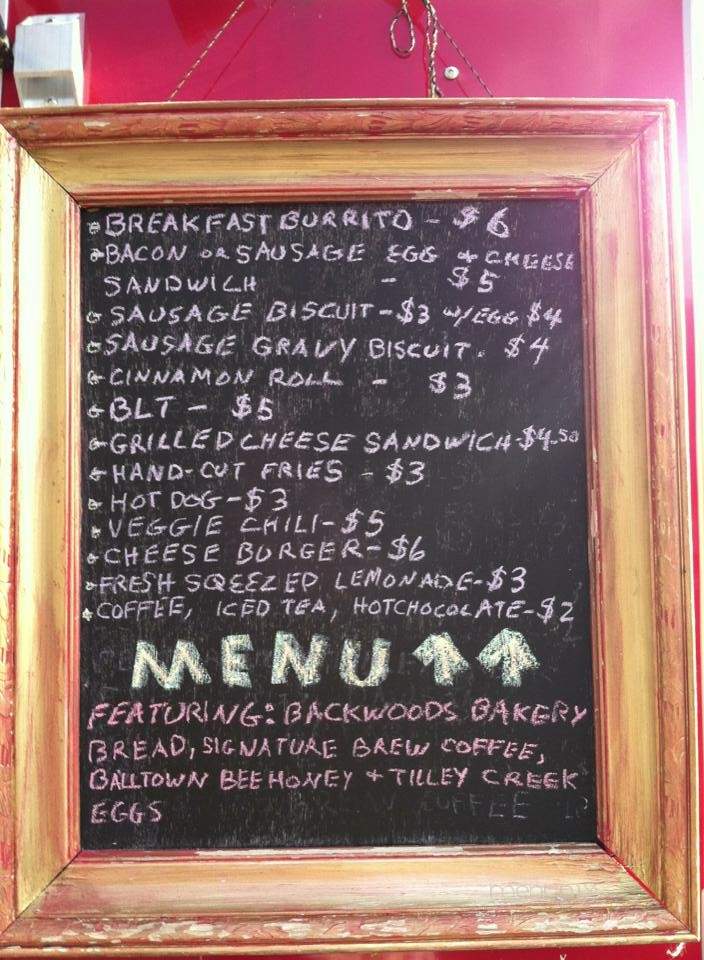 BREAKFAST BURRITO - $6
BACON OR SAUSAGE EGG + CHEESE
SANDWICH - $5
SAUSAGE BISCUIT - $3 W/EGG $4
SAUSAGE GRAVY BISCUIT. $4
CINNAMON ROLL - $3
BLT - $5
GRILLED CHEESE SANDWICH-$4.50
HAND-CUT FRIES - $3
HOT DOG - $3
VEGGIE CHILI - $5
CHEESE BURGER - $6
FRESH SQEEZED LEMONADE - $3
COFFEE, ICED TEA, HOTCHOCOLATE - $2
MENU ↑↑
FEATURING: BACKWOODS BAKERY
BREAD, SIGNATURE BREW COFFEE,
BALLTOWN BEE HONEY + TILLEY CREEK
EGGS